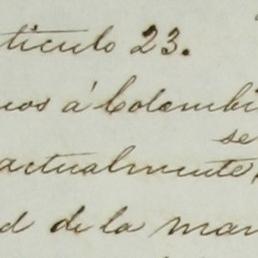 ticulo 23.
nos á Colombi
se
actualmente,
d de la man